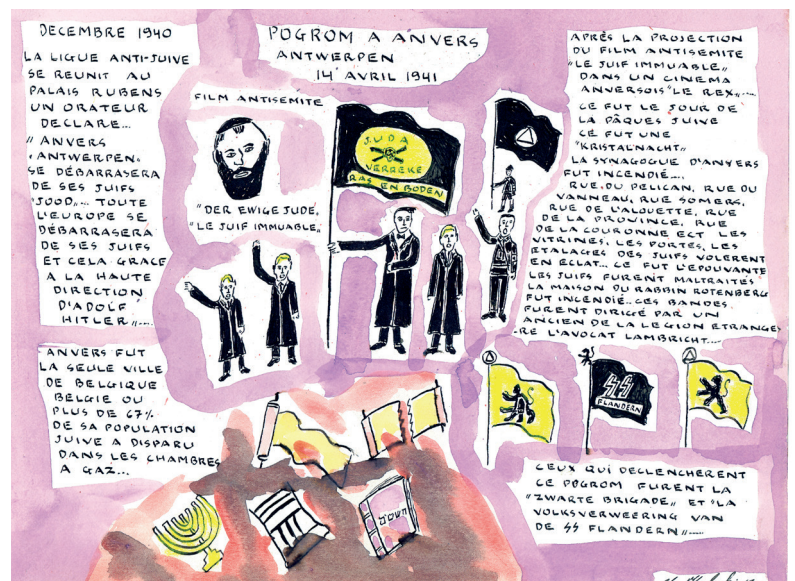 DECEMBRE 1940
LA LIGUE ANTI-JUIVE
SE REUNIT AU
PALAIS RUBENS
UN ORATEUR
DECLARE...
"ANVERS
"ANTWERPEN"
SE DÉBARRASERA
DE SES JUIFS
"JOOD"... TOUTE
L'EUROPE SE
DÉBARRASERA
DE SES JUIFS
ET CELA GRACE
A LA HAUTE
DIRECTION
D'ADOLF
HITLER"....
ANVERS FUT
LA SEULE VILLE
DE BELGIQUE
BELGIE OU
PLUS DE 67%
DE SA POPULATION
JUIVE A DISPARU
DANS LES CHAMBRES
A GAZ...
POGROM A ANVERS
ANTWERPEN
14 AVRIL 1941
FILM ANTISEMITE
"DER EWIGE JUDE"
"LE JUIF IMMUABLE"
JUDA
VERREKE
RAS EN BODEN
APRÈS LA PROJECTION
DU FILM ANTISEMITE
"LE JUIF IMMUABLE"
DANS UN CINEMA
ANVERSOIS "LE REX"....
CE FUT LE JOUR DE
LA PÂQUES JUIVE
CE FUT UNE
"KRISTALNACHT"
LA SYNAGOGUE D'ANVERS
FUT INCENDIÉ....
RUE DU PELICAN, RUE DU
VANNEAU, RUE SOMERS,
RUE DE L'ALOUETTE, RUE
DE LA PROVINCE, RUE
DE LA COURONNE ECT LES
VITRINES, LES PORTES, LES
ETALAGES DES JUIFS VOLERENT
EN ECLAT... CE FUT L'EPOUVANTE
LES JUIFS FURENT MALTRAITÉS
LA MAISON DU RABBIN ROTENBERG
FUT INCENDIÉ...CES BANDES
FURENT DIRIGÉ PAR UN
ANCIEN DE LA LEGION ETRANGE-
RE L'AVOCAT LAMBRICHT....
SS
FLANDERN
CEUX QUI DECLENCHERENT
CE POGROM FURENT LA
"ZWARTE BRIGADE" ET "LA
VOLKSVERWEERING VAN
DE SS FLANDERN"....